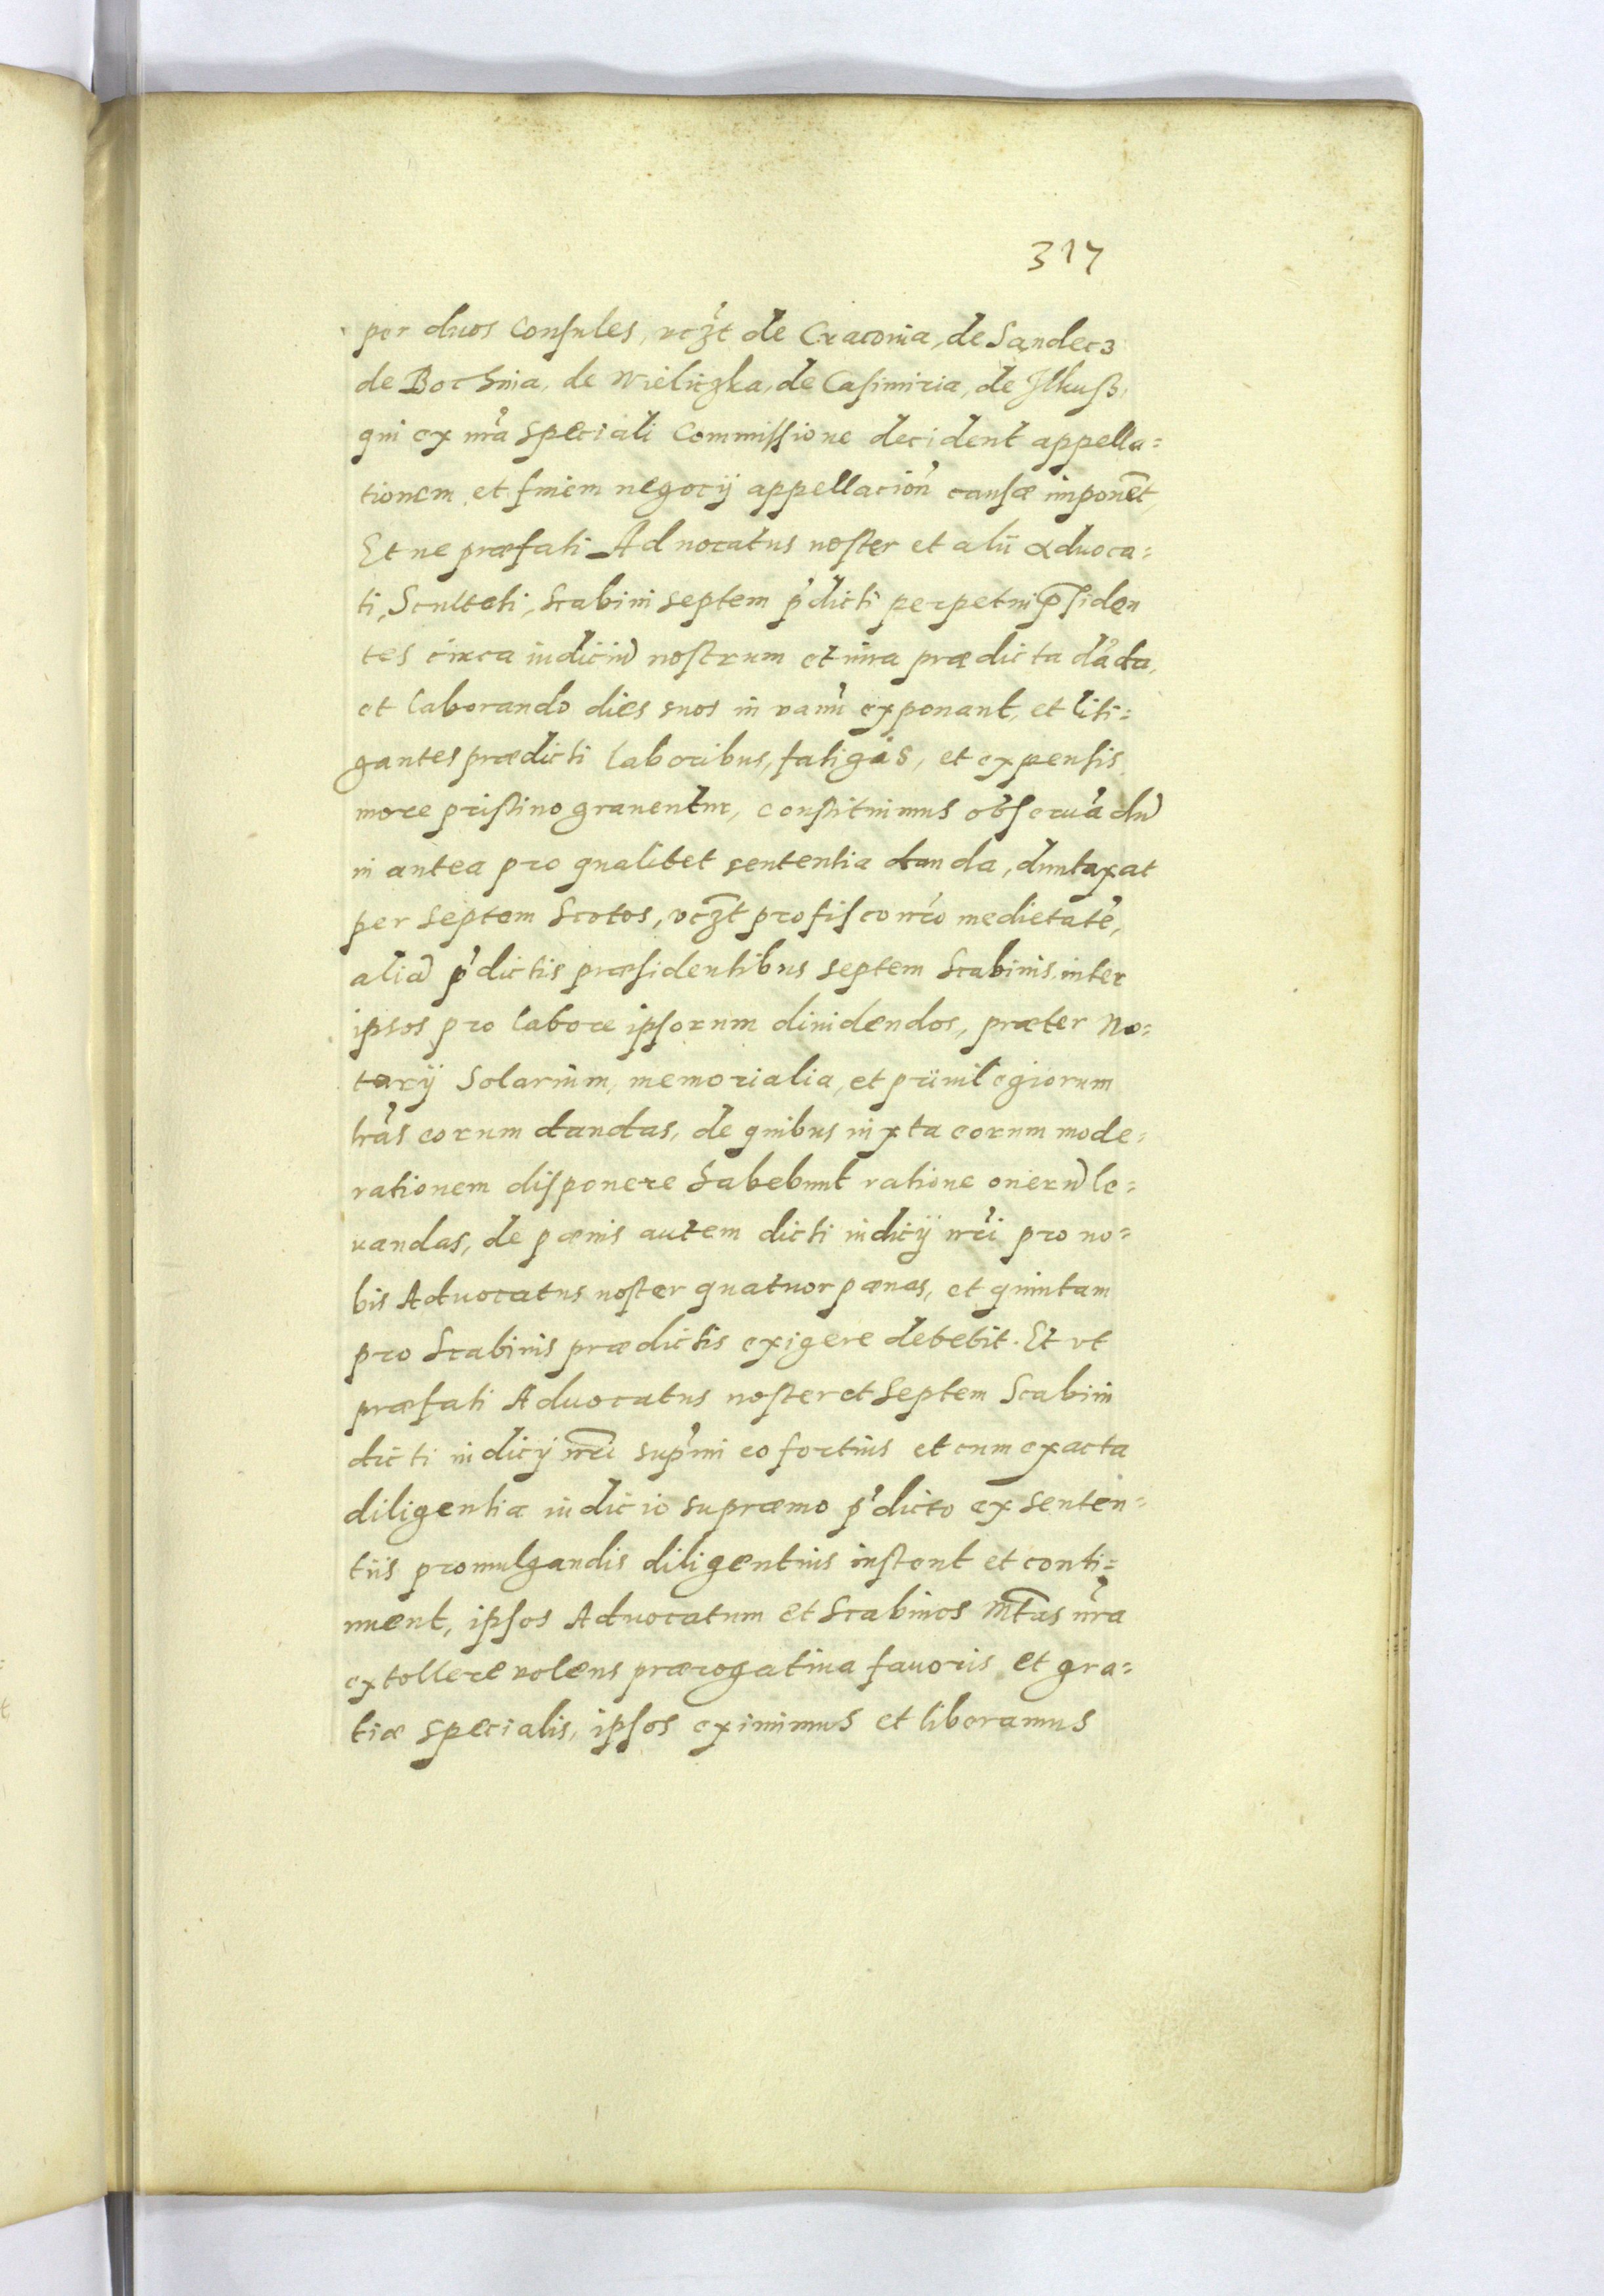 317
per duos Consules, vcz̃t de Cracovia, de Sandecz
de Bochnia, de Wieliczka, de Casimiria, de Ilkusz,
qui ex nr̃a speciali Commissione decident appella=
tionem et finem negocij appellacion̄ causæ imponēt,
Et ne præfati Advocatus noster et alii advoca=
ti, Sculteti, Scabini septem p̃dicti perpetui p̄siden
tes circa iudiciū nostrum et iura prædicta dāda,
et laborando dies suos in vanū exponant, et liti=
gantes prædicti laboribus, fatigis, et expensis
more pristino graventur, constituimus observādū
in antea pro qualibet sententia danda, duntaxat
per septem Scotos, vcz̃t pro fisco nr̃o medietatē,
aliā p̃dictis præsidentibus septem Scabinis inter
ipsos pro labore ipsorum dividendos, præter No=
tarij Solarium, memorialia, et privilegiorum
lr̃as eorum dandas, de quibus iuxta eorum mode=
rationem disponere habebunt ratione onerū le=
vandas, de pœnis autem dicti iudicij nr̃i pro no=
bis Advocatus noster quatuor pœnas, et quintam
pro Scabinis prædictis exigere debebit. Et vt
præfati Advocatus noster et Septem Scabini
dicti iudicij nr̃i sup̃mi eo fortius et cum exacta
diligentia iudicio supræmo p̃dicto ex senten=
tiis promulgandis diligentius instent et conti=
nuent, ipsos Advocatum et Scabinos Mt̃as nr̃a
extollere volens prærogativa favoris et gra=
tiæ specialis, ipsos eximimus et liberamus